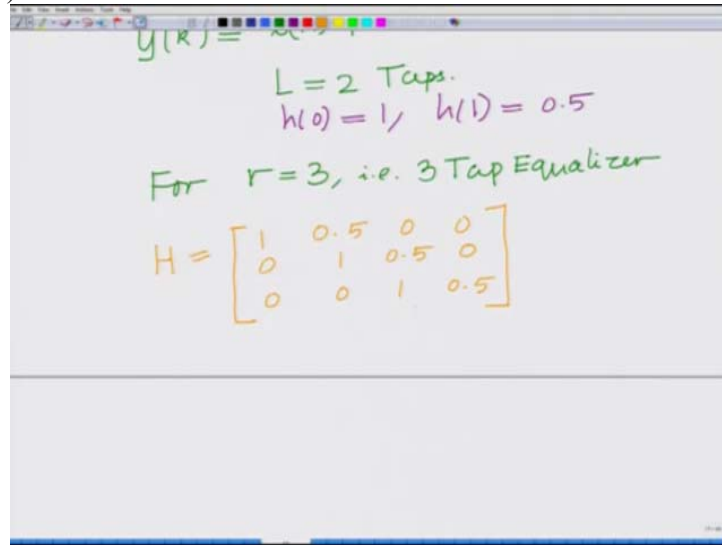 y(k) =
L = 2 Taps.
h(0) = 1, h(1) = 0.5
For r = 3, i.e. 3 Tap Equalizer
H = [ 1 0.5 0 0
0 1 0.5 0
0 0 1 0.5 ]